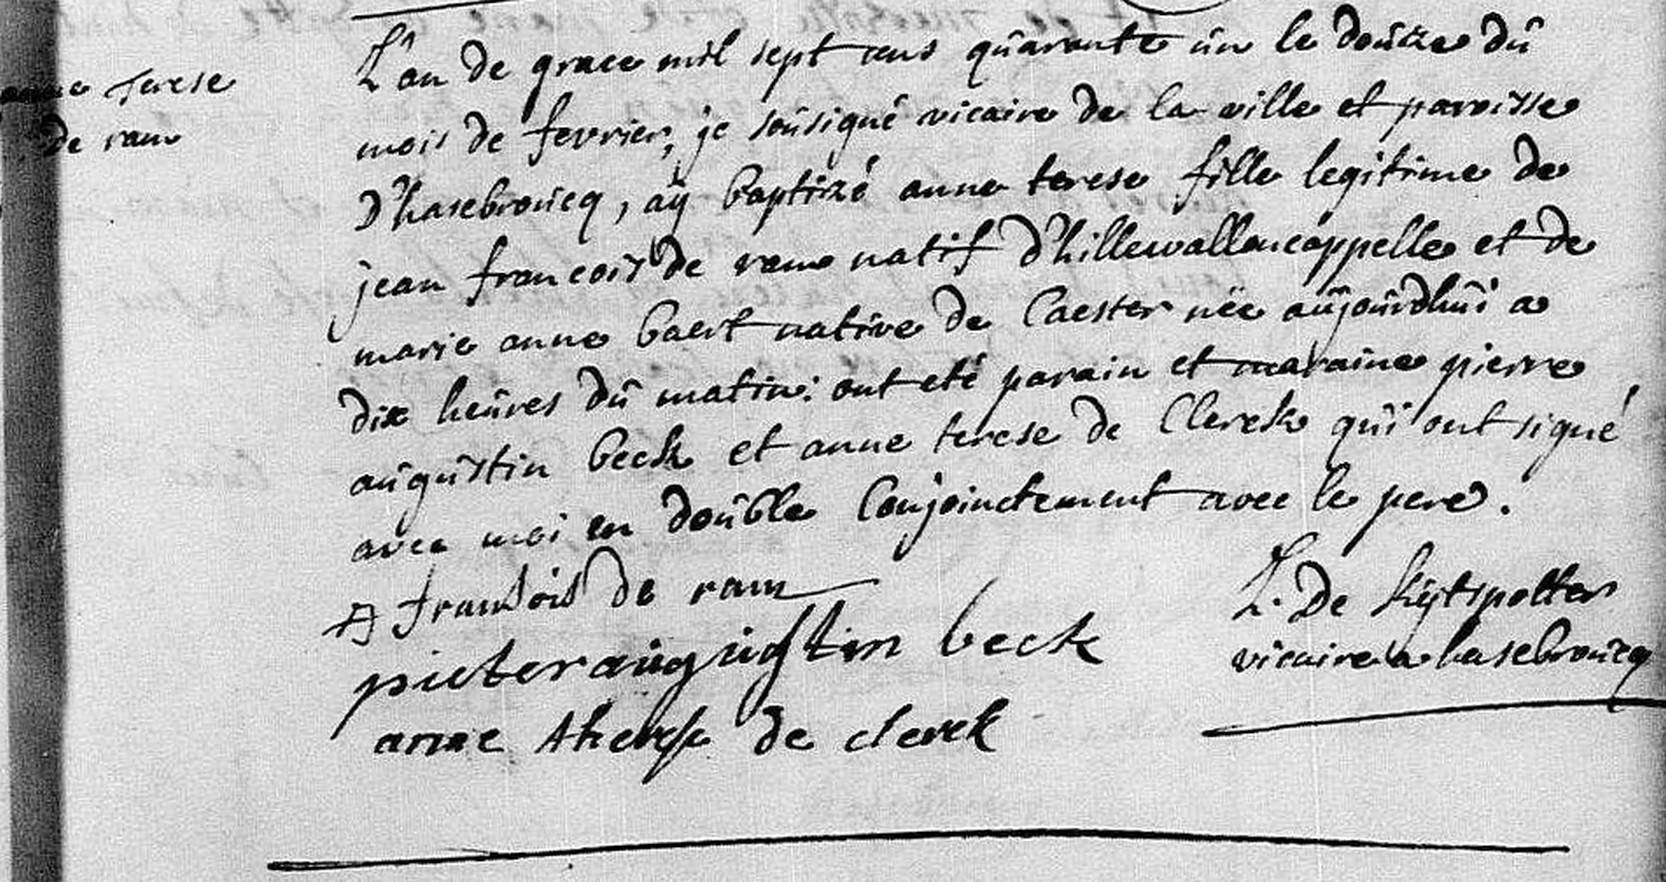 anne Terese
de ram
L'an de grace mil sept cens quarante un le douze du
mois de fevrier, je sousigné vicaire de la ville et paroisse
D'hasebroucq, aÿ baptizé anne terese fille legitime de
jean francois De ram natif D'hillewallencappelle et de
marie anne baert native de Caester née aujourdhui a
dix heures du matin: ont eté parain et maraine pierre
augustin beck et anne terese de Clerck qui ont signé
avec moi en double Conjointement avec le pere.
fransois de ram
pieter augustin beck
anne therese de clerck
De Kÿtspotter
vicaire a hasebroucq